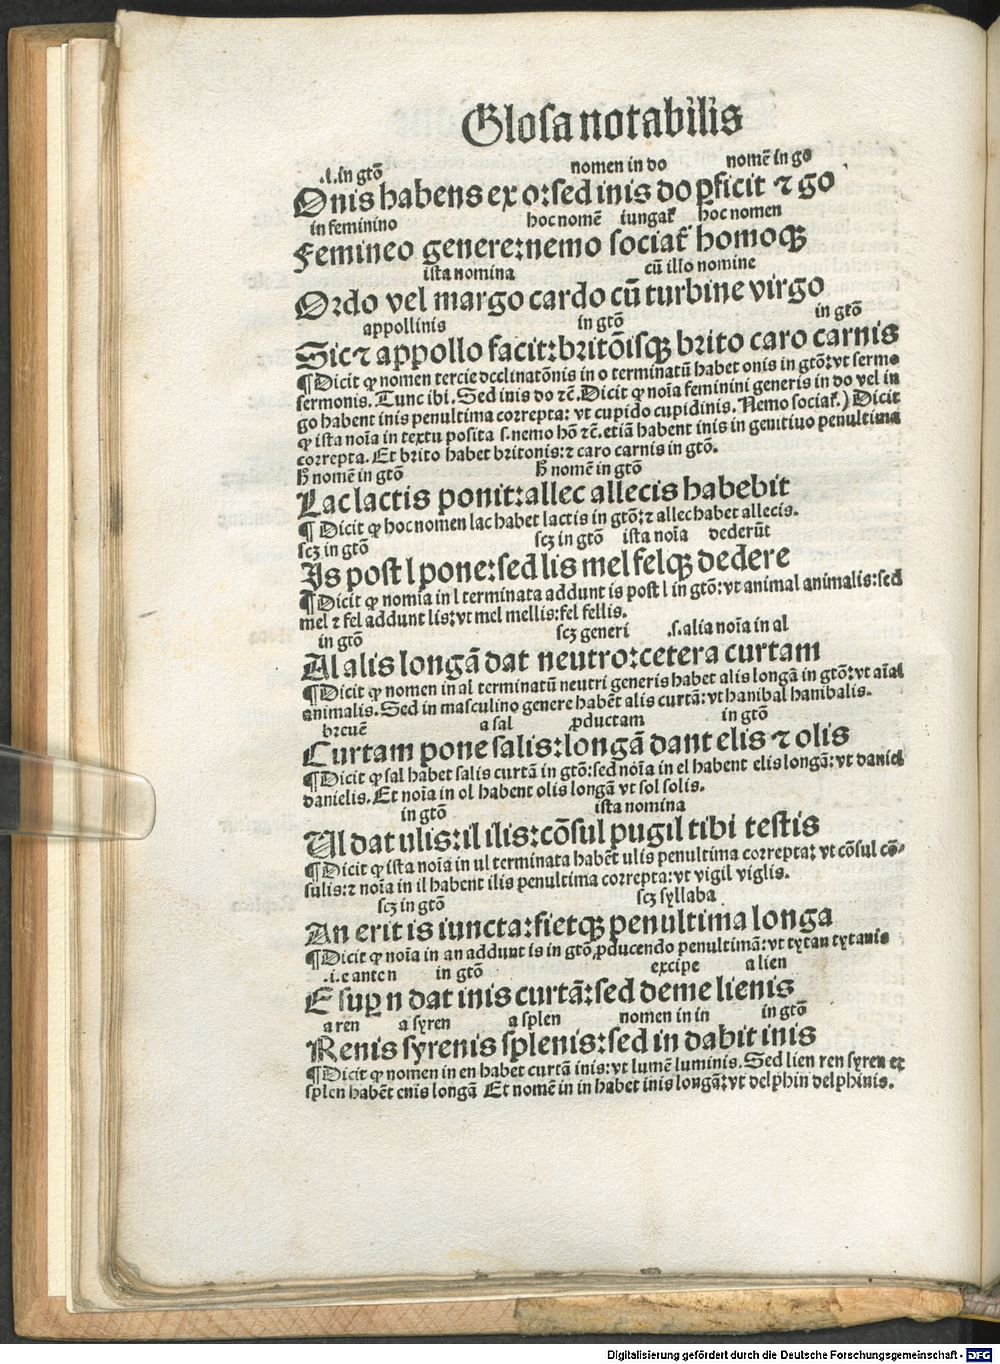 Glosa notabilis
.i. in gtō nomen in do nomē in go
Onis habens ex o: sed inis do ꝑficit ⁊ go
in feminino hoc nomē iungat᷑ hoc nomen
Femineo genere: nemo sociat᷑ homoqꝫ
ista nomina cū illo nomine
Ordo vel margo cardo cū turbine virgo
appollinis in gtō in gtō
Sic ⁊ appollo facit: britōisqꝫ brito caro carnis
¶ Dicit ꝙ nomen tercie declinatōnis in o terminatū habet onis in gtō: vt sermo
sermonis. Tunc ibi. Sed inis do ⁊c̄. Dicit ꝙ noīa feminini generis in do vel in
go habent inis penultima correpta: vt cupido cupidinis. Nemo sociat᷑.) Dicit
ꝙ ista noīa in textu posita s. nemo hō ⁊c̄. etiā habent inis in genitiuo penultima
correpta. Et brito habet britonis: ⁊ caro carnis in gtō.
ħ nomē in gtō ħ nomē in gtō
Lac lactis ponit: allec allecis habebit
¶ Dicit ꝙ hoc nomen lac habet lactis in gtō: ⁊ allec habet allecis.
scꝫ in gtō scꝫ in gtō ista noīa dederūt
Is post l pone: sed lis mel felqꝫ dedere
¶ Dicit ꝙ nomīa in l terminata addunt is post l in gtō: vt animal animalis: sed
mel ⁊ fel addunt lis: vt mel mellis: fel fellis.
in gtō scꝫ generi .s. alia noīa in al
Al alis longā dat neutro: cetera curtam
¶ Dicit ꝙ nomen in al terminatū neutri generis habet alis longā in gtō: vt aīal
animalis. Sed in masculino genere habēt alis curtā: vt hanibal hanibalis.
breuē a sal ꝓductam in gtō
Curtam pone salis: longā dant elis ⁊ olis
¶ Dicit ꝙ sal habet salis curtā in gtō: sed noīa in el habent elis longā: vt daniel
danielis. Et noīa in ol habent olis longā vt sol solis.
in gtō ista nomina
Ul dat ulis: il ilis: cōsul pugil tibi testis
¶ Dicit ꝙ ista noīa in ul terminata habēt ulis penultima correpta: vt cōsul cō-
sulis: ⁊ noīa in il habent ilis penultima correpta: vt vigil viglis.
scꝫ in gtō scꝫ syllaba
An erit is iuncta: fietqꝫ penultima longa
¶ Dicit ꝙ noīa in an addunt is in gtō, ꝓducendo penultimā: vt tytan tytanis
.i. e ante n in gtō excipe a lien
E suꝑ n dat inis curtā: sed deme lienis
a ren a syren a splen nomen in in in gtō
Renis syrenis splenis: sed in dabit inis
¶ Dicit ꝙ nomen in en habet curtā inis: vt lumē luminis. Sed lien ren syren et
splen habēt enis longā Et nomē in in habet inis longā: vt delphin delphinis.
Digitalisierung gefördert durch die Deutsche Forschungsgemeinschaft - DFG